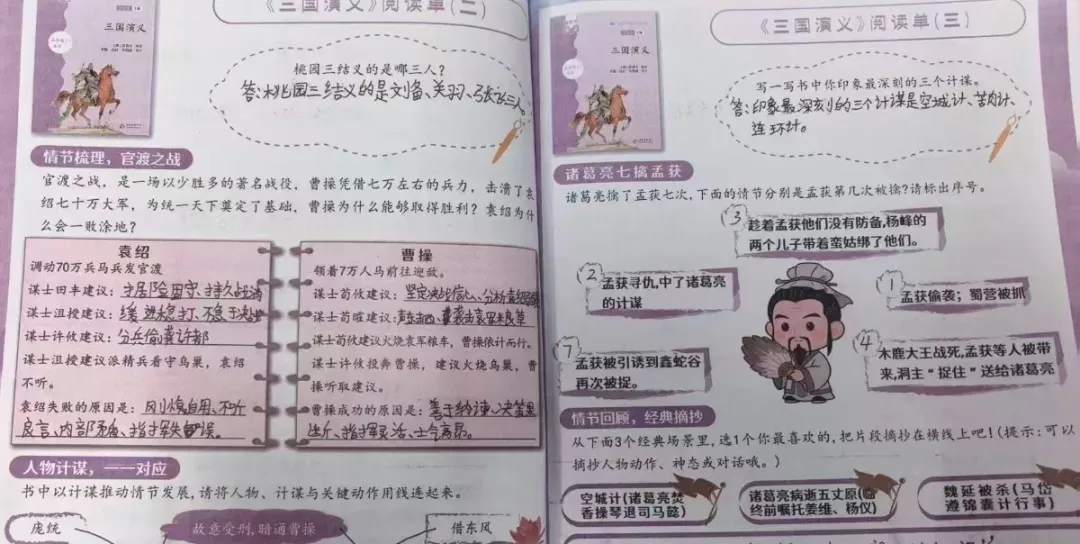 《三国演义》阅读单(二)
三国演义
桃园三结义的是哪三人?
答:桃园三结义的是刘备、关羽、张飞三人。
情节梳理，官渡之战
官渡之战，是一场以少胜多的著名战役，曹操凭借七万左右的兵力，击溃了袁
绍七十万大军，为统一天下奠定了基础，曹操为什么能够取得胜利？袁绍为什
么会一败涂地？
袁绍
调动70万兵马兵发官渡
谋士田丰建议:
谋士沮授建议:
谋士许攸建议:分兵偷袭许都
谋士沮授建议派精兵看守乌巢，袁绍
不听。
袁绍失败的原因是:刚愎自用、不听
良言、内部矛盾、指挥失误。
曹操
领着7万人马前往迎敌。
谋士荀攸建议:坚定决战信心、分析袁绍
谋士荀彧建议:袭击袁军粮草
谋士荀攸建议火烧袁军粮车，曹操依计而行。
谋士许攸投奔曹操，建议火烧乌巢，曹
操听取建议。
曹操成功的原因是:善于纳谏、决策果
断、指挥灵活、士气高昂。
人物计谋，一一对应
书中以计谋推动情节发展，请将人物、计谋与关键动作用线连起来。
庞统
故意受刑，暗通曹操
借东风
《三国演义》阅读单(三)
三国演义
写一写书中你印象最深刻的三个计谋。
答:印象最深刻的三个计谋是空城计、苦肉计、
连环计。
诸葛亮七擒孟获
诸葛亮擒了孟获七次，下面的情节分别是孟获第几次被擒？请标出序号。
3
趁着孟获他们没有防备，杨峰的
两个儿子带着蛮姑绑了他们。
2
孟获寻仇，中了诸葛亮
的计谋
1
孟获偷袭；蜀营被抓
7
孟获被引诱到鑫蛇谷
再次被捉。
4
木鹿大王战死，孟获等人被带
来，洞主“捉住”送给诸葛亮
情节回顾，经典摘抄
从下面3个经典场景里，选1个你最喜欢的，把片段摘抄在横线上吧！(提示：可以
摘抄人物动作、神态或对话哦。)
空城计(诸葛亮焚
香操琴退司马懿)
诸葛亮病逝五丈原(临
终前嘱托姜维、杨仪)
魏延被杀(马岱
遵锦囊计行事)